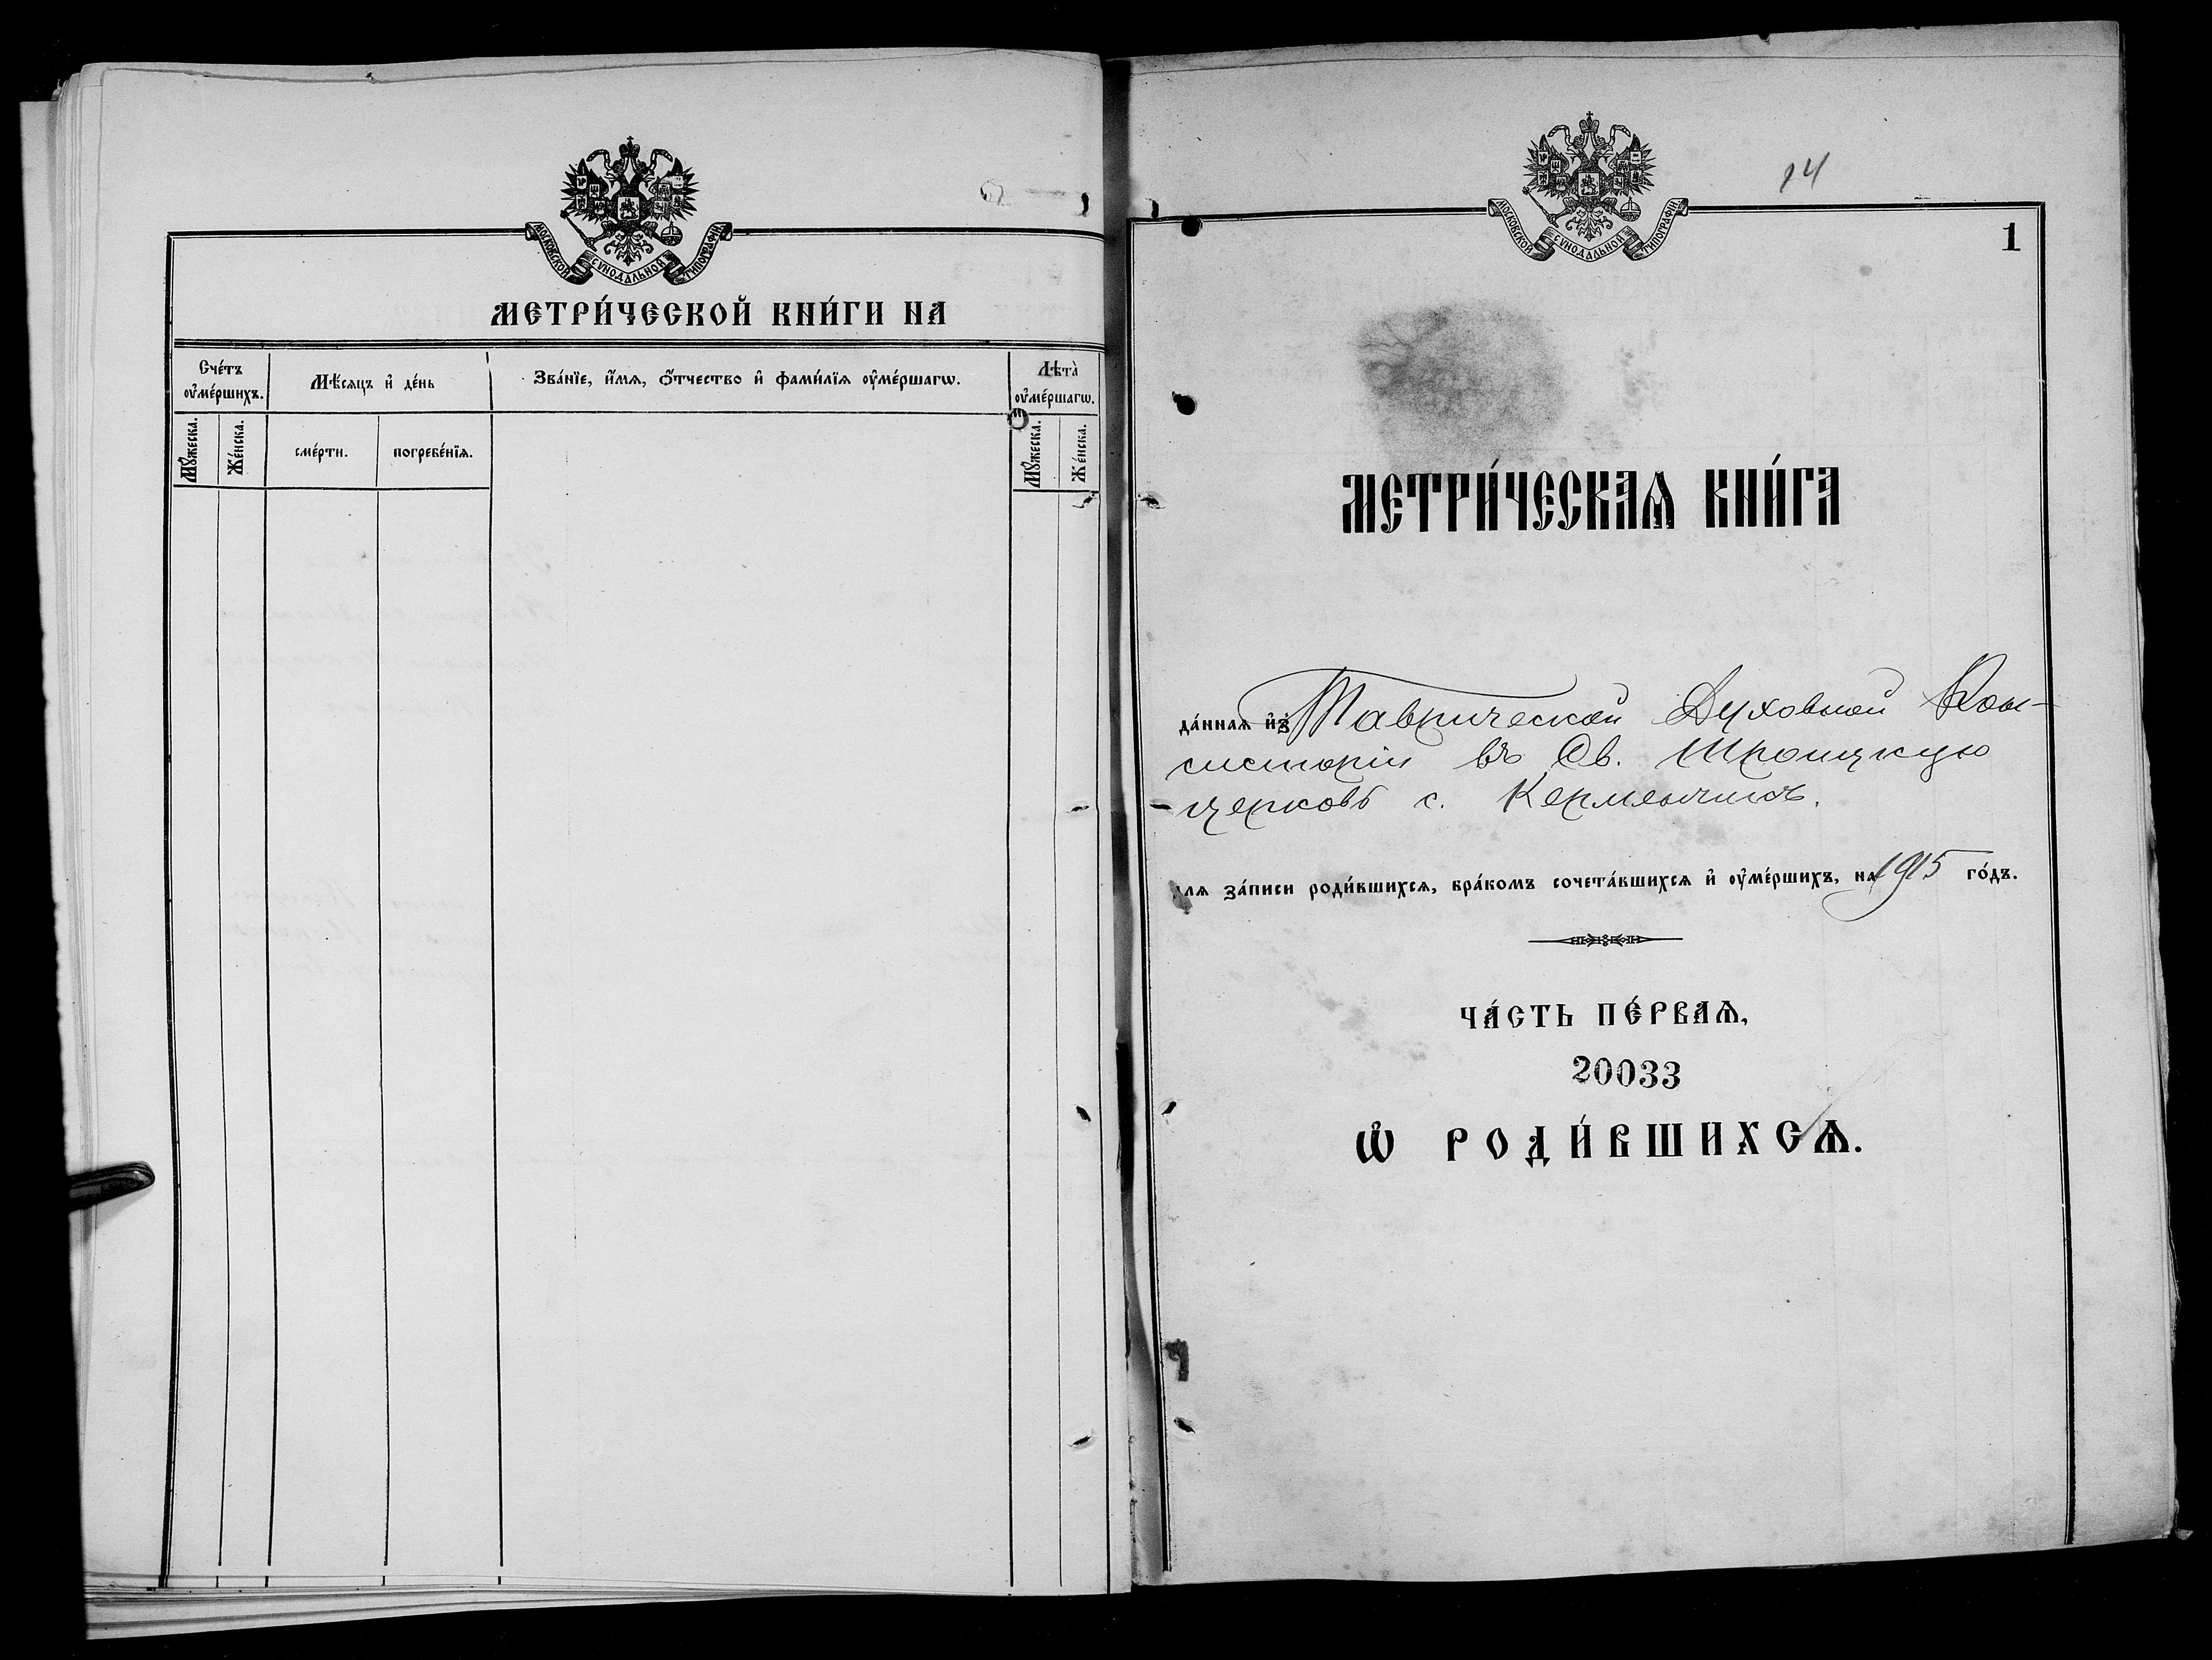 МОСКОВСКОЙ СѴНОДАЛЬНОЙ ТИПОГРАФІИ
МЕТРИ́ЧЕСКОЙ КНИ́ГИ НА
Сче́тъ
оу҆ме́ршихъ.
Мѣ́сяцъ и҆ де́нь
Зва́нїе, и҆́мѧ, ѻ҆́тчество и҆ фами́лїѧ оу҆ме́ршагѡ.
Лѣта̀
оу҆ме́ршагѡ.
Мꙋ́жеска.
Же́нска.
сме́рти.
погребе́нїѧ.
Мꙋ́жеска.
Же́нска.
14
МОСКОВСКОЙ СѴНОДАЛЬНОЙ ТИПОГРАФІИ
1
МЕТРИ́ЧЕСКАѦ КНИ́ГА
да́ннаѧ и҆з̾ Таврической Духовной Кон-
систоріи въ Св. Троицкую
церковь с. Керменчикъ.
для за́писи роди́вшихсѧ, бра́комъ сочета́вшихсѧ и҆ оу҆ме́ршихъ, на 1915 го́дъ.
ЧА́СТЬ ПЕ́РВАѦ,
20033
Ѡ҆ РОДИ́ВШИХСѦ.